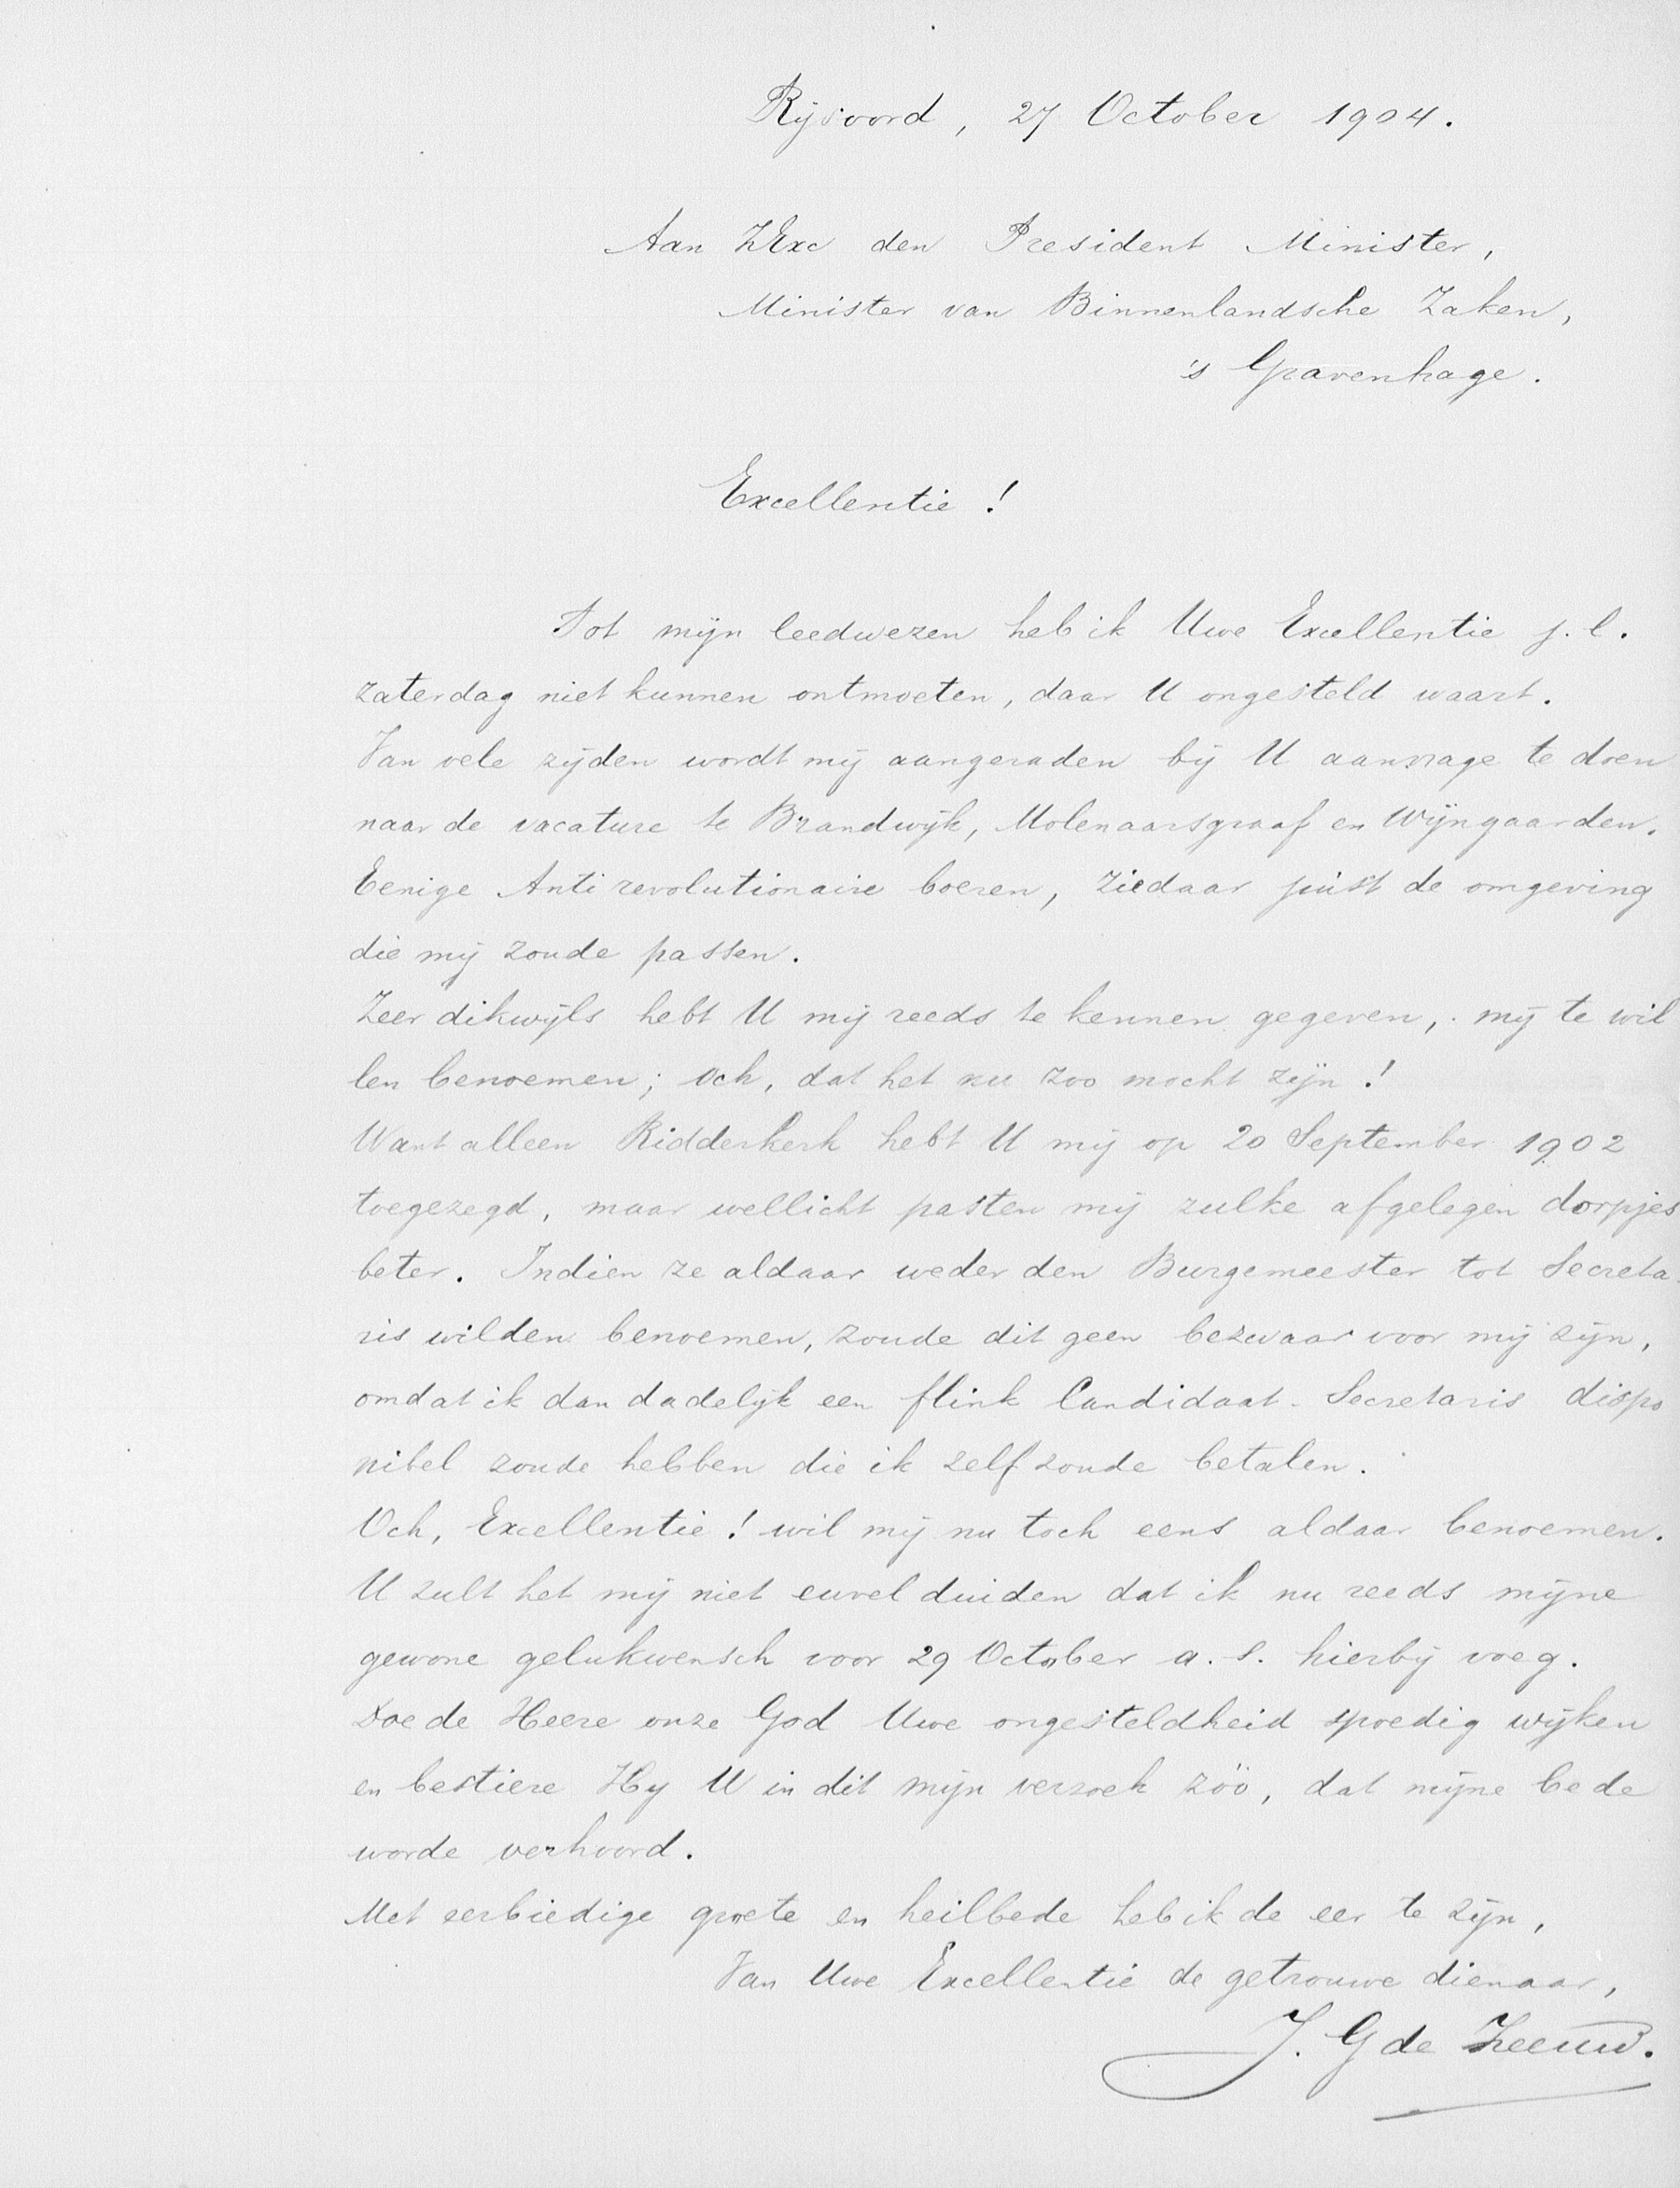 Rijsoord, 27 October 1904.
Aan ZExc den President Minister,
Minister van Binnenlandsche Zaken,
's Gravenhage.
Excellentie!
Tot mijn leedwezen heb ik Uwe Excellentie j.l.
zaterdag niet kunnen ontmoeten, daar U ongesteld waart.
Van vele zijden wordt mij aangeraden bij U aanvrage te doen
naar de vacature te Brandwijk, Molenaarsgraaf en Wijngaarden.
Eenige Anti revolutionaire boeren, ziedaar juist de omgeving
die mij zoude passen.
Zeer dikwijls hebt U mij reeds te kennen gegeven, mij te wil
len benoemen; och, dat het nu zoo mocht zijn!
Want alleen Ridderkerk hebt U mij op 20 September 1902
toegezegd, maar wellicht pasten mij zulke afgelegen dorpjes
beter. Indien ze aldaar weder den Burgemeester tot Secreta
ris wilden benoemen, zoude dit geen bezwaar voor mij zijn,
omdat ik dan dadelijk een flink Candidaat-Secretaris dispo
nibel zoude hebben die ik zelf zoude betalen.
Och, Excellentie! wil mij nu toch eens aldaar benoemen.
U zult het mij niet euvel duiden dat ik nu reeds mijne
gewone gelukwensch voor 29 October a.s. hierbij voeg.
Doe de Heere onze God Uwe ongesteldheid spoedig wijken
en bestiere Hij U in dit mijn verzoek zóó, dat mijne bede
worde verhoord.
Met eerbiedige groete en heilbede heb ik de eer te zijn,
Van Uwe Excellentie de getrouwe dienaar,
J. G de Zeeuw.